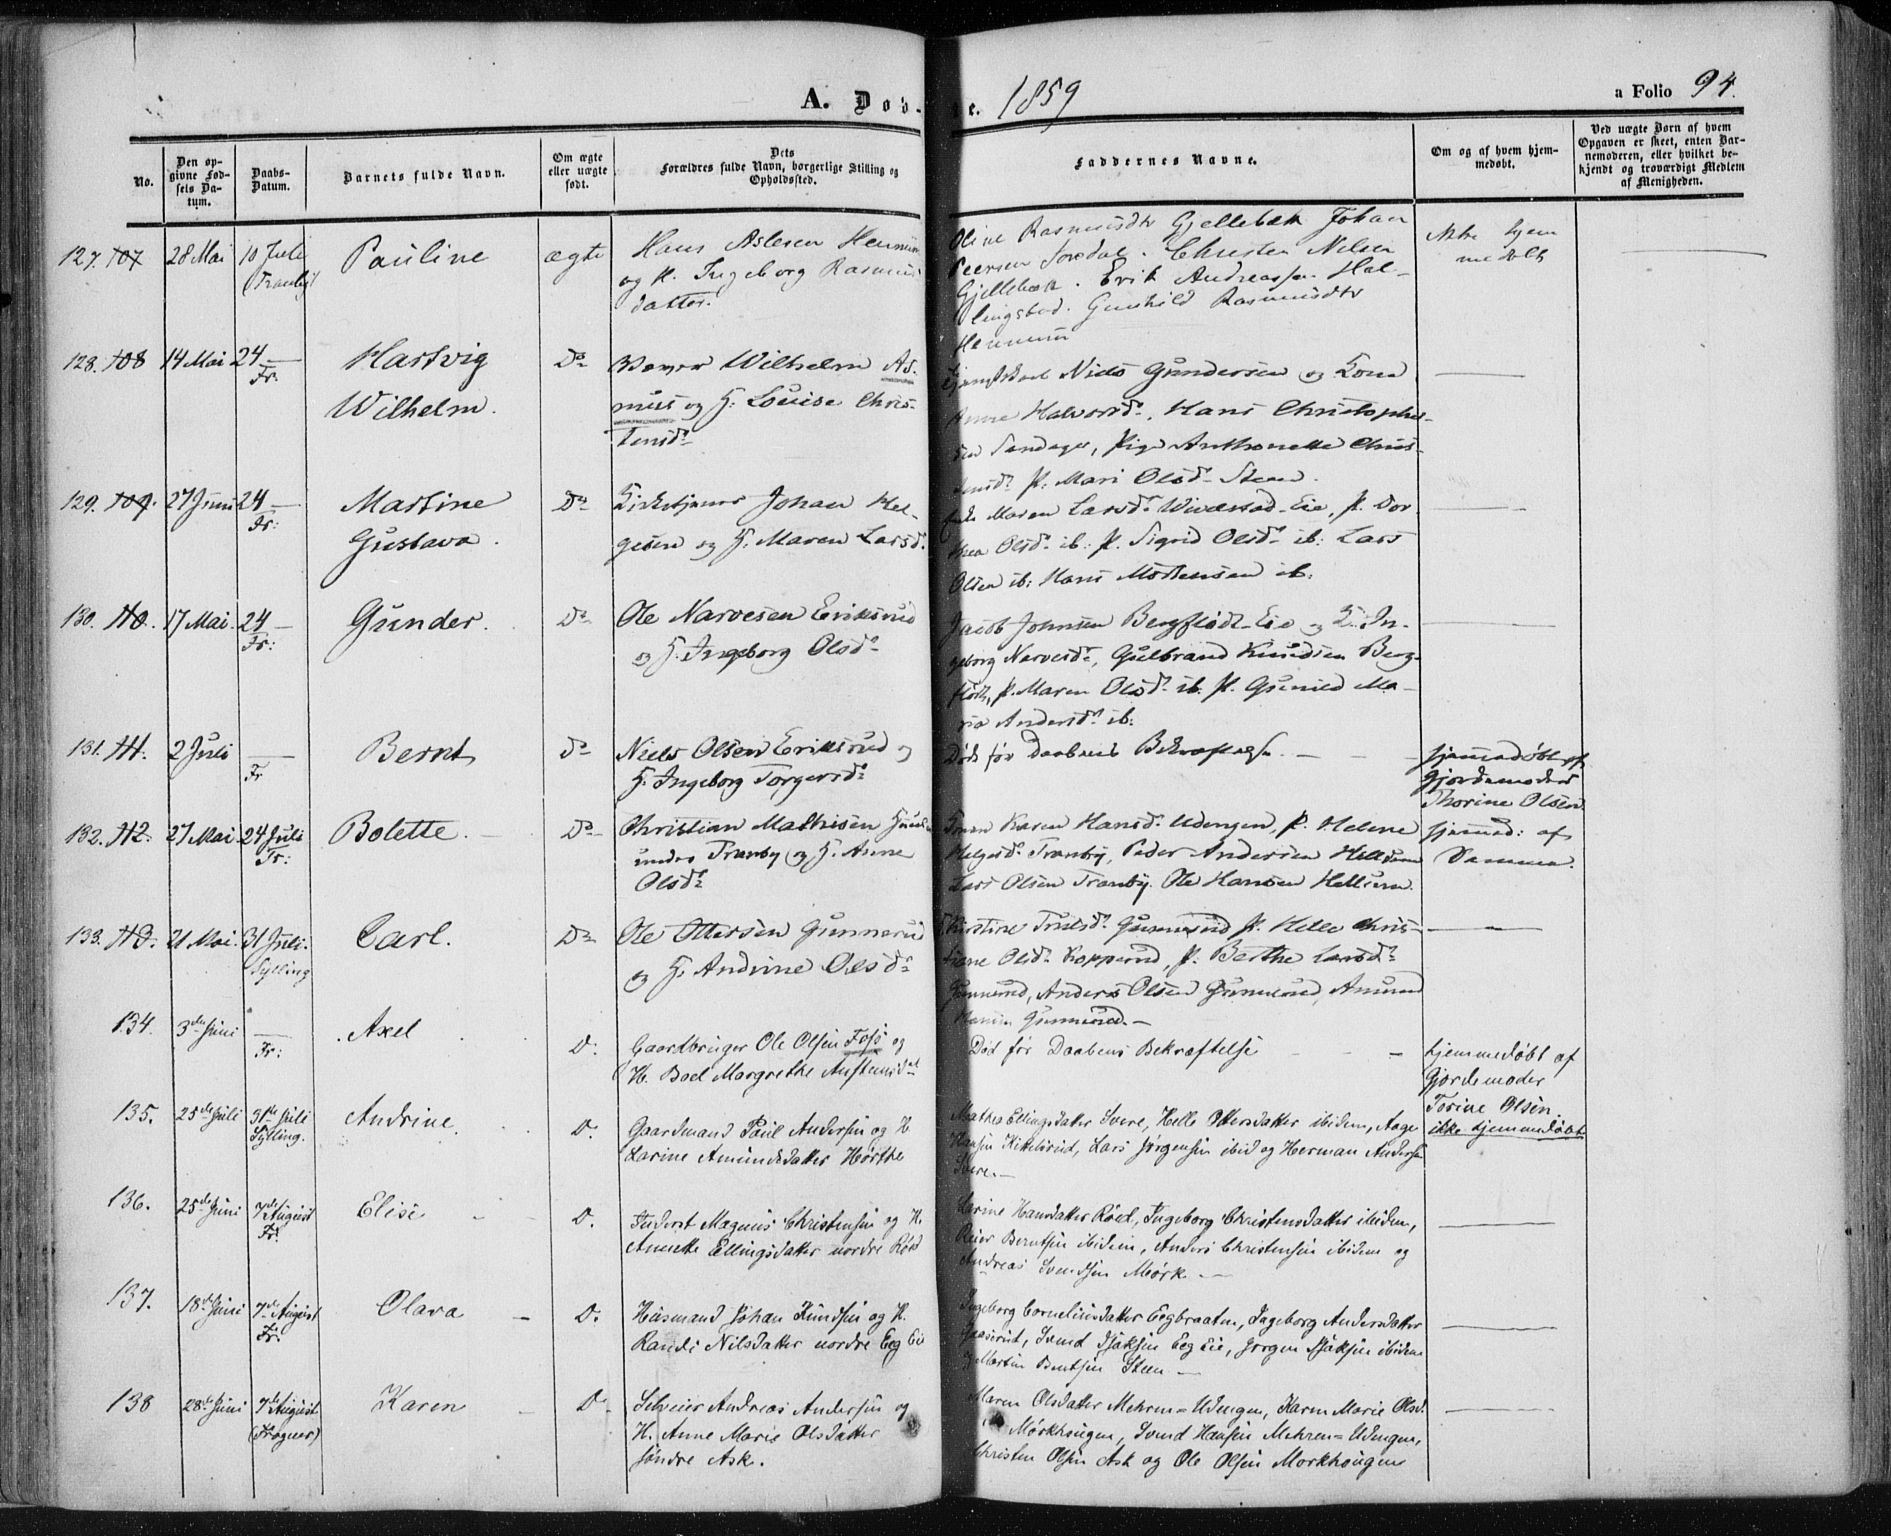 A. Døbte. 1859
a Folio 94.
No.
Den opgivne Fødsels Datum.
Daabs-Datum.
Barnets fulde Navn.
Om ægte eller uægte født.
Dets Forældres fulde Navn, borgerlige Stilling og Opholdssted.
Faddernes Navne.
Om og af hvem hjemmedøbt.
Ved uægte Børn af hvem Opgaven er skeet, enten Barnemoderen, eller hvilket bekjendt og troværdigt Medlem af Menigheden.
127. 107 28 Mai 10 Juli (Tranby) Pauline ægte
Hans Aslesen Hennum
og K. Ingeborg Rasmus
datter.
Oline Rasmusdtr Gjellebæk Johan
Peersen . Christen Nilsen
Gjellebæk. Erik Andreassen Hal-
lingstad. Gunhild Rasmusdtr
Hennum
ikke hjem
medøbt
128. 108 14 Mai 24 Fr. Hartvig
Wilhelm. Do
Wilhelm As-
mus og H. Louise Chris-
tensd.
Niels Gundersen og Kone
Anne Halvorsd., Hans Christopher-
sen , Pige Anthonette Chris-
tensd. P. Mari Olsd. Steen.
129. 109. 27 Juni 24 Fr: Martine
Gustava. Do
Kirketjener Johan Hel-
gesen og H. Maren Larsd.
Enke Maren Larsd. Eie, P. Dor-
thea Olsd. ib: P. Sigrid Olsd. ib: Lars
Olsen ib: Hans Mortensen ib:
130. 110. 17 Mai. 24 Fr: Gunder. Do
Ole Narvesen Eriksrud
og H. Ingeborg Olsd.
Jacob Johnsen Bergflødt-Eie og K. In-
geborg Narvesd., Gulbrand Knudsen Berg-
flødt, P. Maren Olsd. ib. P. Gunild Ma-
ria Andersd. ib:
131. 111. 2 Juli Fr Bernt Do
Niels Olsen Eriksrud og
H. Ingeborg Torgersd.
Død før Daabens Bekræftelse.
hjemmedøbt af
Gjordemoder
Thorine Olsen
132. 112. 27 Mai. 24 Juli Fr: Bolette. Do
Christian Mathisen
under Tranby og H. Anne
Olsd.
Karen Hansd. Udengen, P. Helene
Helgesd. Tranby, Peder Andersen Hellum
Lars Olsen Tranby. Ole Hansen Hellum.
hjemmed: af
Samme.
133. 113. 21 Mai. 31 Juli. Sylling Carl. Do
Ole Ottersen Gunnerud
og H. Andrine Olsd.
Kirstine Trulsd. Gunnerud P. Helle Chris-
tiane Olsd. Kopperud, P. Berthe Larsd.
Gunnerud, Anders Olsen Gunnerud, Amund
Hansen Gunnerud.
134. 3die Juni Fr: Axel D.
Gaardbruger Ole Olsen Foss og
H. Boel Margrethe Austensdat
Død før Daabens Bekræftelse
hjemmedøbt af
Gjordemoder
Torine Olsen.
135. 25de Juli 31te Juli Sylling. Andrine. D.
Gaardmand Paul Andersen og H
Larine Amundsdatter Hørthe
Mathea Ellingsdatter Svere, Helle Ottersdatter ibidem, Aage
Hansen Kittelsrud, Lars Jørgensen ibid og Herman Andersen
Svere.
ikke hjemmedøbt
136. 25de Juni 7de August Fr. Elise D.
Inderst Magnus Christensen og H.
Annette Ellingsdatter nordre Røed
Larine Hansdatter Röed, Ingeborg Christensdatter ibidem,
Reier Berntsen ibidem, Anders Christensen ibidem og
Andreas Svendsen Mørk.
137. 18de Juni 7de August Fr. Olava D.
Husmand Johan Knudsen og H.
Randi Nilsdatter nordre Eeg Eie
Ingeborg Corneliusdatter Eegbraaten, Ingeborg Andersdatter
Gaaserud, Svend Isaksen Eeg Eie, Jørgen Isaksen ibidem
og Martin Berntsen Steen
138 28de Juni 7de August (Frogner) Karen D.
Selveier Andreas Andersen og
H. Anne Marie Olsdatter
søndre Ask.
Maren Olsdatter Mehren-Udengen, Karen Marie Olsd.
Mørkhougen, Svend Hansen Mehren-Udengen,
Christen Olsen Ask og Ole Olsen Mørkhougen